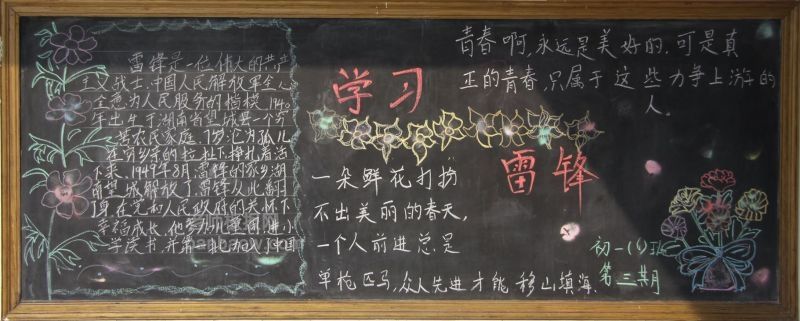 雷锋是一位伟大的共产
主义战士,中国人民解放军全心
全意为人民服务的楷模,1940
年出生于湖南省望城县一个贫
苦农民家庭,7岁沦为孤儿
在穷乡亲的拉扯下挣扎着活
下来,1949年8月,雷锋的家乡湖
南望城解放了,雷锋从此翻
了身,在党和人民政府的关怀下
幸福成长,他参加儿童团,进小
学读书,并第一批加入了中国
学习
雷锋
青春啊,永远是美好的,可是真
正的青春,只属于这些力争上游的
人。
一朵鲜花打扮
不出美丽的春天,
一个人前进总是
单枪匹马,众人先进才能移山填海.
初一(1)班
第三期